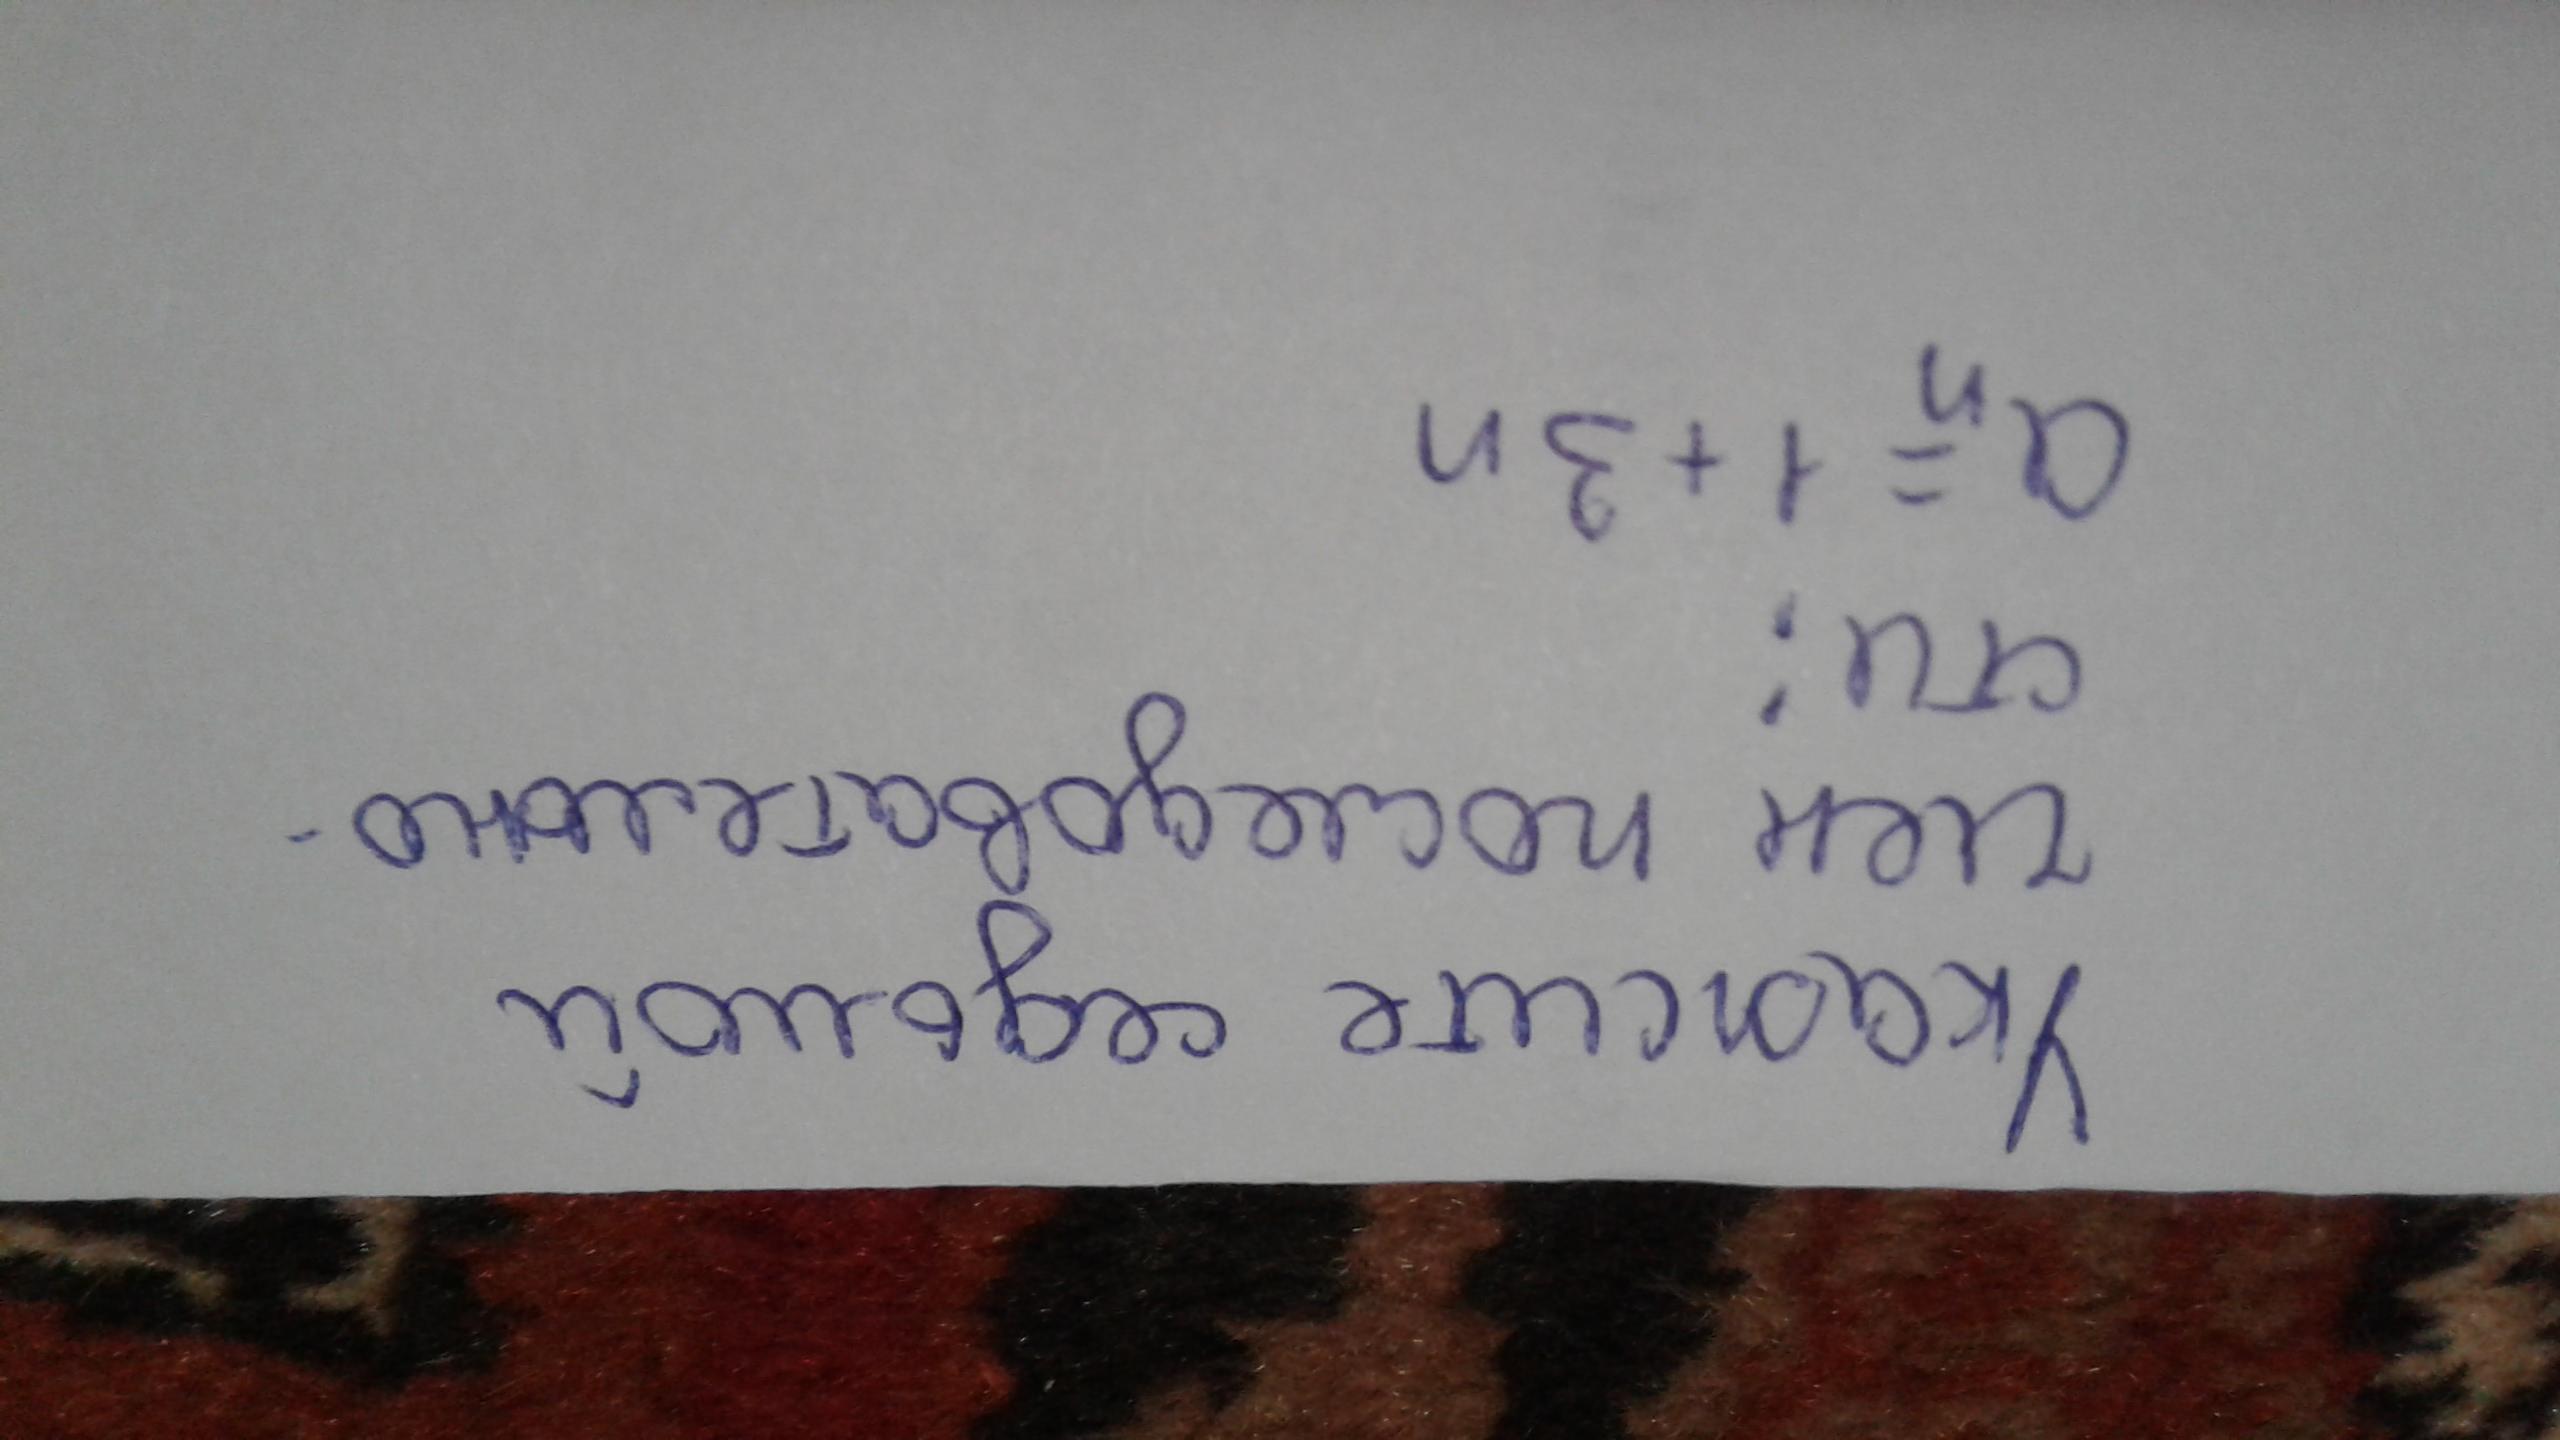 Укажите седьмой
член последовательно-
сти:
aₙ = 1 + 3n